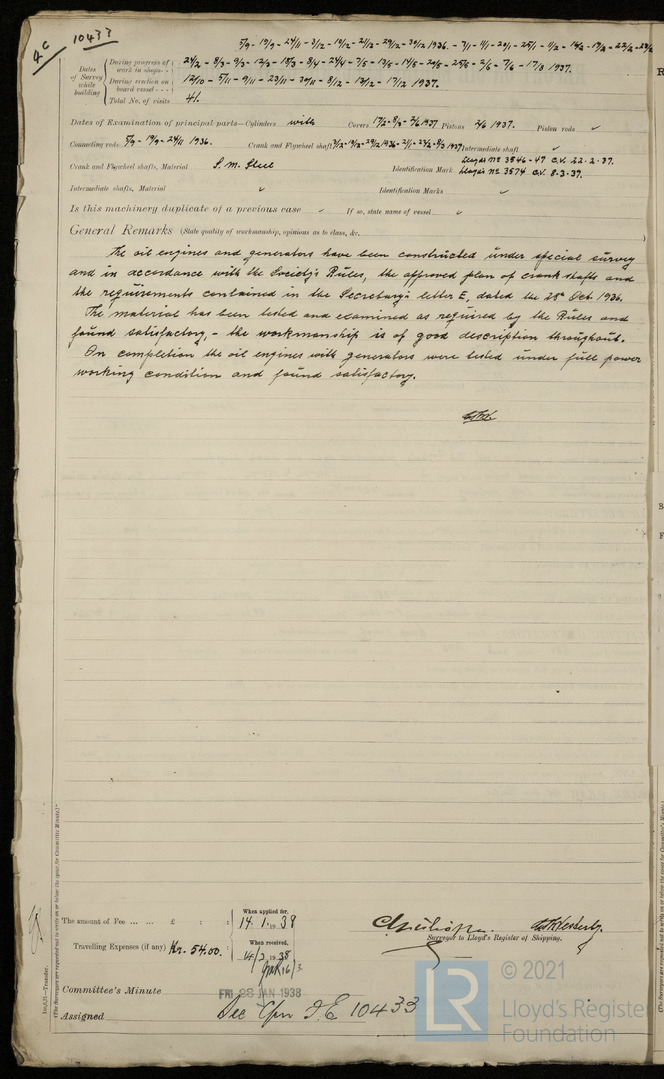 4c 10433
5/9 - 19/9 - 24/11 - 3/12 - 19/12 - 21/12 - 29/12 - 30/12 1936. - 7/1 - 11/1 - 20/1 - 25/1 - 11/2 - 19/2
Dates of Survey while building
During progress of work in shops - - 24/2 - 8/3 - 9/3 - 12/3 - 18/3 - 8/4 - 24/4 - 7/5 - 19/5 - 14/5 - 24/5 - 25/5 - 2/6 - 7/6 - 17/8 1937.
During erection on board vessel - - - 12/10 - 5/11 - 9/11 - 23/11 - 30/11 - 8/12 - 13/12 - 17/12 1937.
Total No. of visits 41.
Dates of Examination of principal parts—Cylinders with Covers 17/2 - 8/3 - 2/6 1937 Pistons 2/6 1937. Piston rods ✓
Connecting rods 5/9 - 19/9 - 24/11 1936. Crank and Flywheel shafts Intermediate shaft ✓
Crank and Flywheel shafts, Material S. M. Steel Identification Mark Lloyds No 3546-47 C.V. 22.2.37.
Lloyds No 3574 C.V. 8.3.37.
Intermediate shafts, Material ✓ Identification Marks ✓
Is this machinery duplicate of a previous case ✓ If so, state name of vessel ✓
General Remarks (State quality of workmanship, opinions as to class, &c.
The oil engines and generators have been constructed under special survey
and in accordance with the Society's Rules, the approved plan of crankshafts and
the requirements contained in the Secretary's letter E, dated the 28th Oct. 1936.
The material has been tested and examined as required by the Rules and
found satisfactory, - the workmanship is of good description throughout.
On completion the oil engines with generators were tested under full power
working condition and found satisfactory.
The amount of Fee ... ... £ : : When applied for, 14.1.1938
Travelling Expenses (if any) Kr. 54.00. When received, 1938
Surveyor to Lloyd's Register of Shipping.
Committee's Minute FRI 28 JAN 1938
Assigned See Cpn F.E. 10433
(The Surveyors are requested not to write on or below the space for Committee's Minute.)
© 2021
LR Lloyd's Register
Foundation